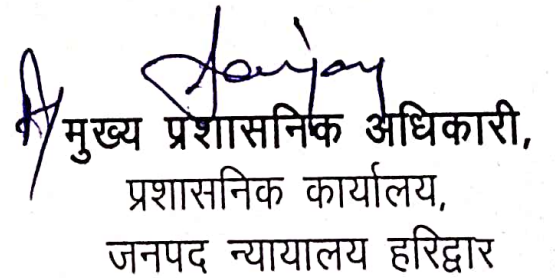 Sanjay
मुख्य प्रशासनिक अधिकारी,
प्रशासनिक कार्यालय,
जनपद न्यायालय हरिद्वार